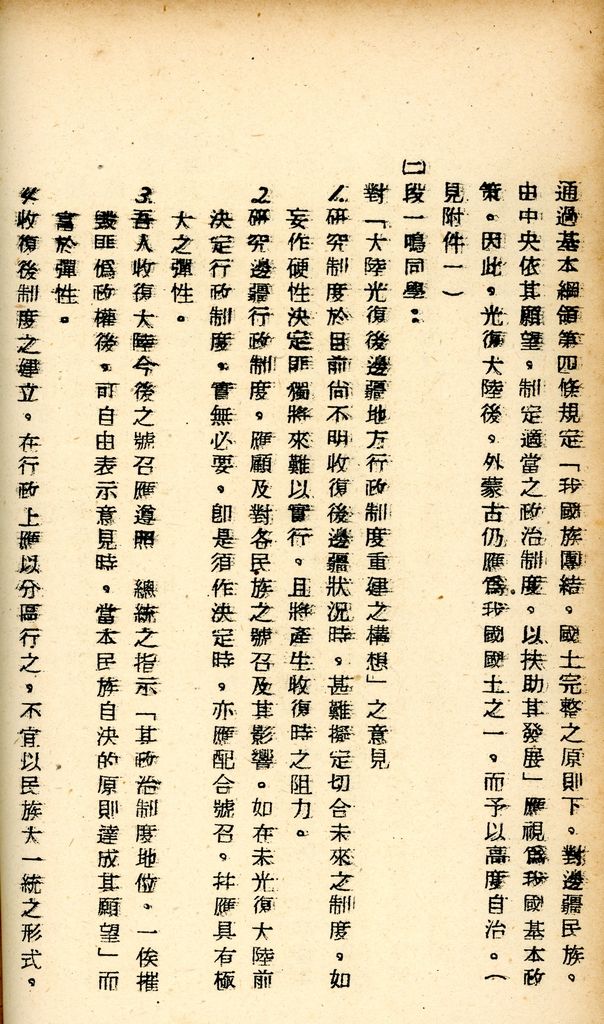 通過基本綱領第四條規定「我國族團結。國土完整之原則下。對邊疆民族。
由中央依其願望。制定適當之政治制度。以扶助其發展」應視爲我國基本政
策。因此。光復大陸後。外蒙古仍應爲我國國土之一。而予以高度自治。(
見附件一)
㈡段一鳴同學:
對「大陸光復後邊疆地方行政制度重建之構想」之意見
1.研究制度於目前尚不明收復後邊疆狀況時。甚難擬定切合未來之制度。如
妄作硬性決定匪獨將來難以實行。且將產生收復時之阻力。
2.研究邊疆行政制度。應顧及對各民族之號召及其影響。如在未光復大陸前
決定行政制度。實無必要。卽是須作決定時。亦應配合號召。幷應具有極
大之彈性。
3.吾人收復大陸今後之號召應遵照 總統之指示「其政治制度地位。一俟摧
毀匪僞政權後。可自由表示意見時。當本民族自決的原則達成其願望」而
富於彈性。
4.收復後制度之建立。在行政上應以分區行之。不宜以民族大一統之形式。